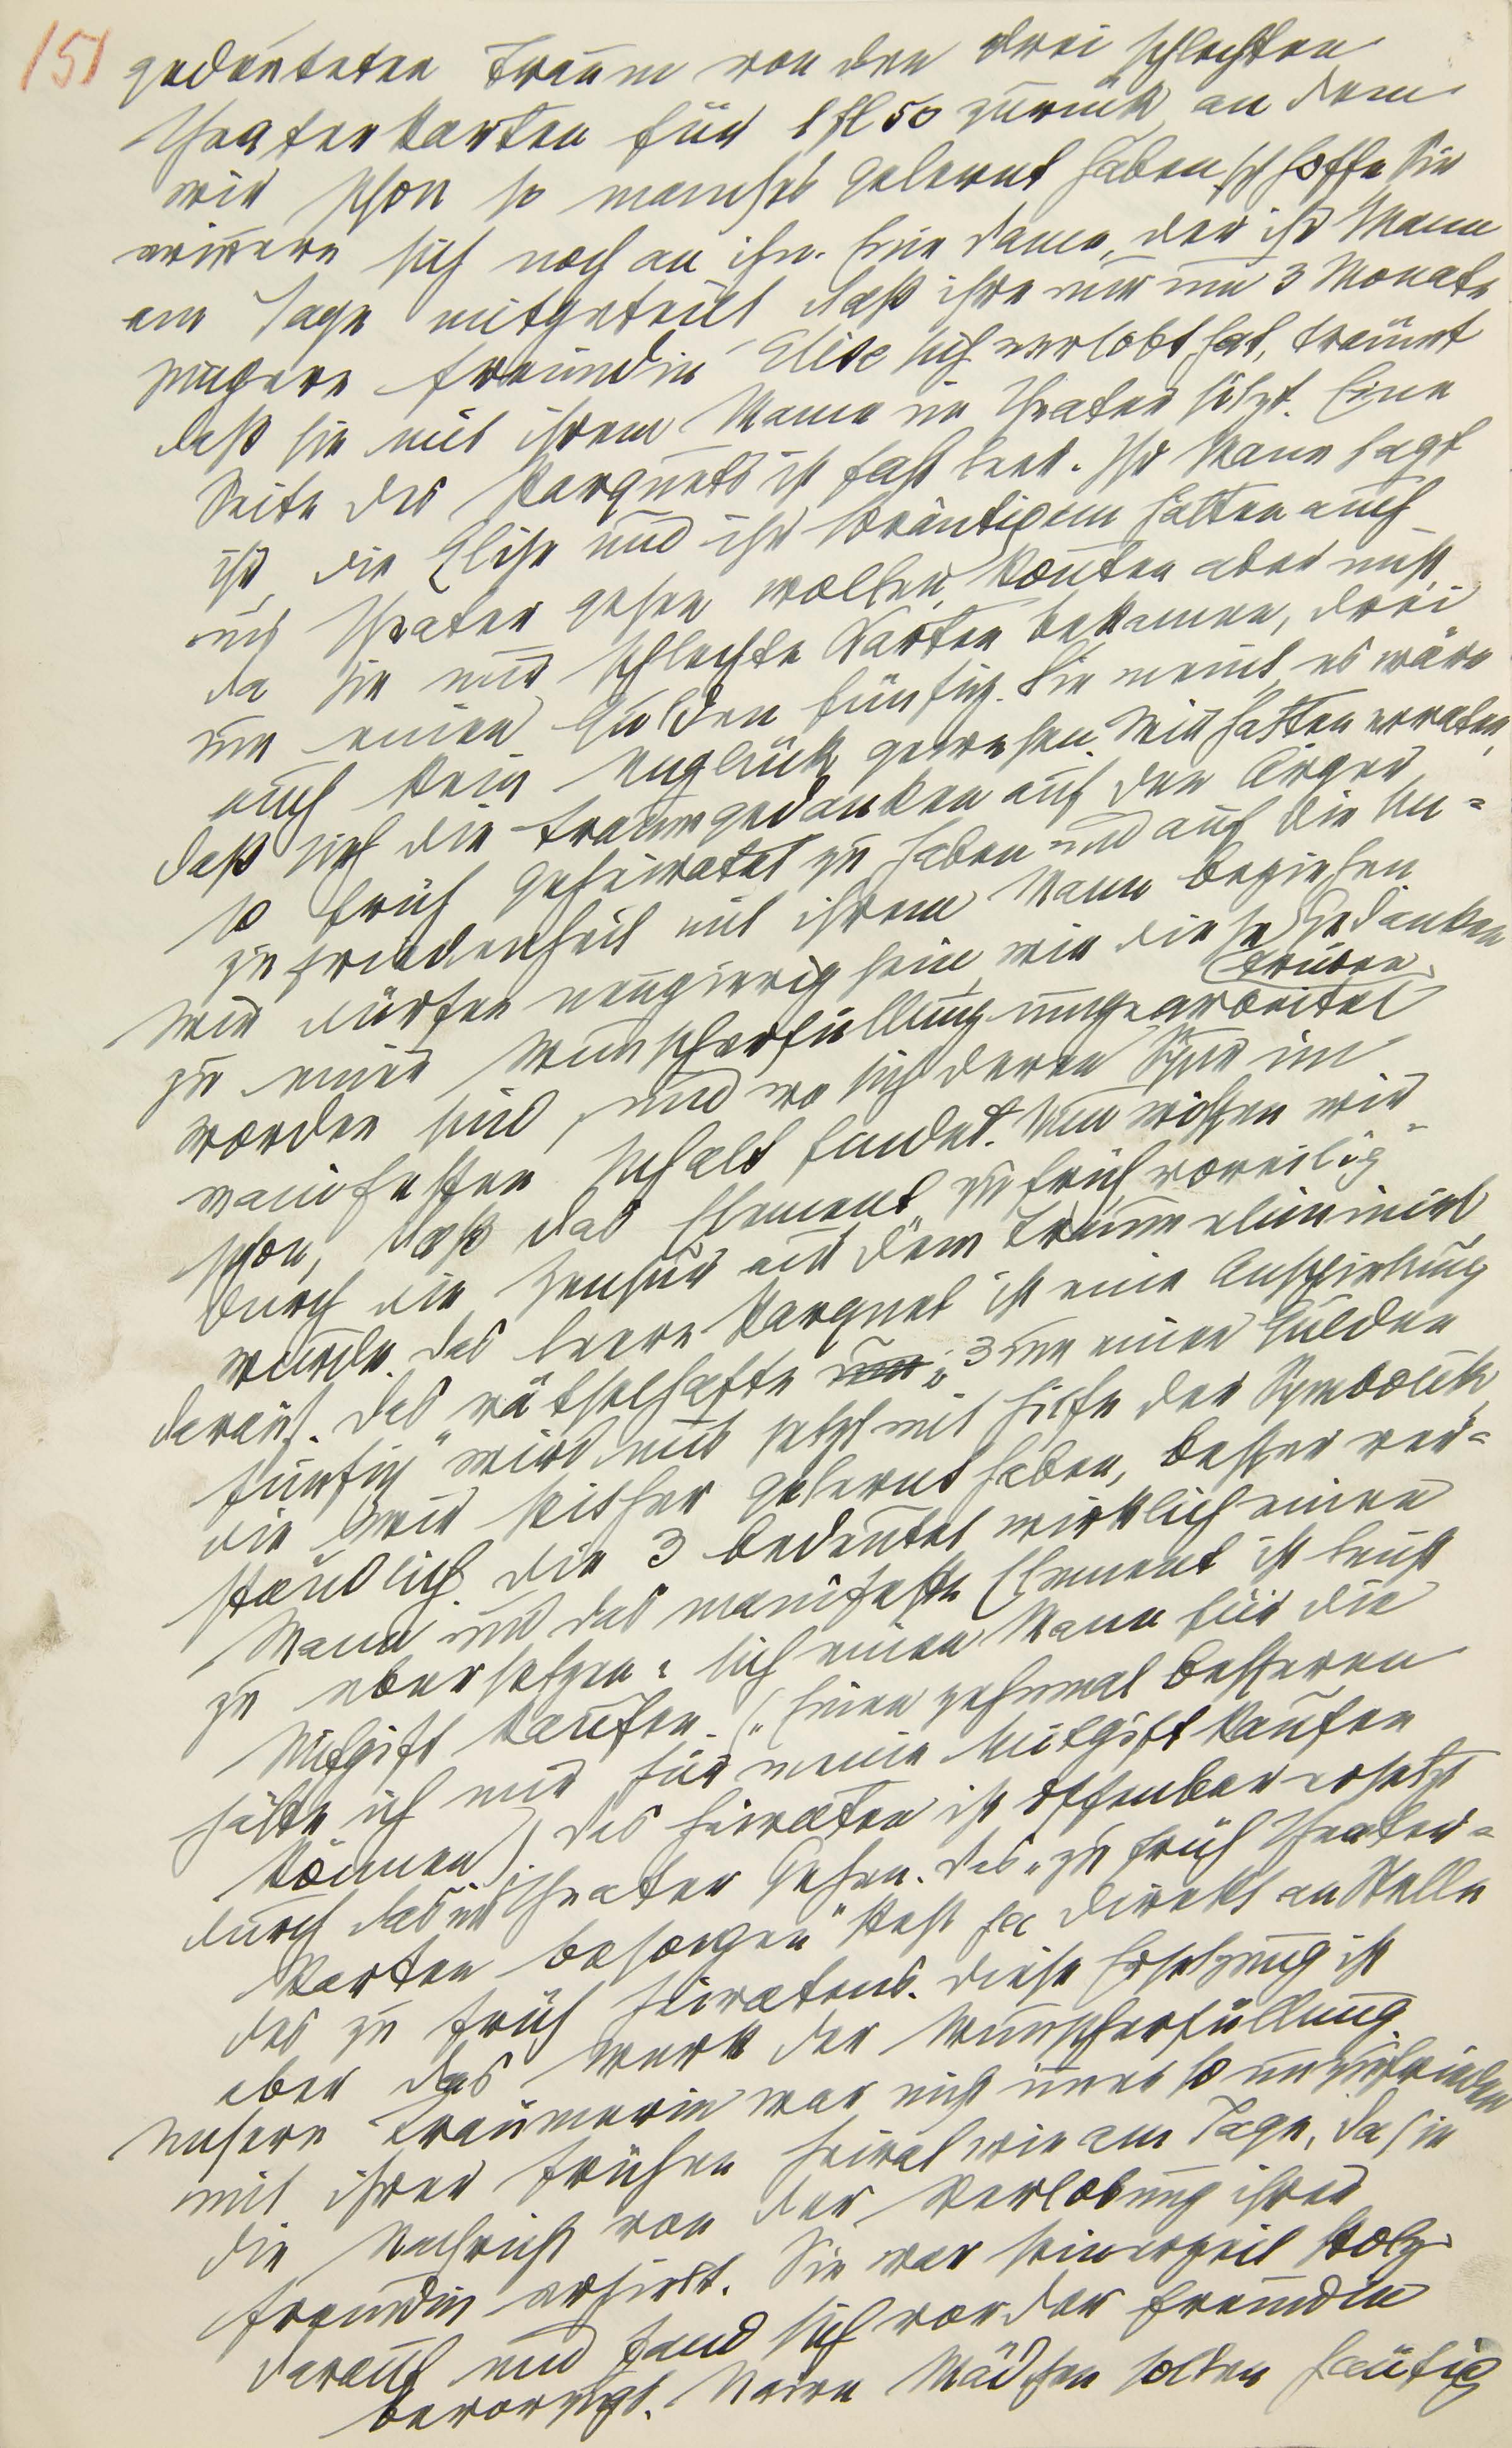 151
gedeuteten Traum von den drei schlechten
Theaterkarten für 1 fl 50 zurück, an dem
wir schon so manches gelernt haben, ich hoffe Sie
erinnern sich noch an ihn. Eine Dame, der ihr Mann
am Tage mitgeteilt, daß ihre nur um 3 Monate
jüngere Freundin Elise sich verlobt hat, träumt
daß sie mit ihrem Manne im Theater sitzt. Eine
Seite des Parquets ist fast leer. Ihr Mann sagt
ihr, die Elise und ihr Bräutigam hätten auch
ins Theater gehen wollen, konnten aber nicht,
da sie nur schlechte Karten bekamen, drei
um einen Gulden fünfzig. Sie meint, es wäre
auch kein Unglück gewesen. Wir hatten erraten,
daß sich die Traumgedanken auf den Ärger,
so früh geheiratet zu haben und auf die Un-
zufriedenheit mit ihrem Mann beziehen.
Wir dürfen neugierig sein, wie diese trüben Gedanken
zu einer Wunscherfüllung umgearbeitet
worden sind, und wo sich deren Spur im
manifesten Inhalt findet. Nun wissen wir
schon, daß das Element „zu früh, voreilig“
durch die Zensur aus dem Traum eliminirt
wurde. Das leere Parquet ist eine Anspielung
darauf. Das rätselhafte „3 um einen Gulden
fünfzig“ wird uns jetzt mit Hilfe der Symbolik,
die wir seither gelernt haben, besser ver-
ständlich. Die 3 bedeutet wirklich einen
Mann und das manifeste Element ist leicht
zu übersetzen: sich einen Mann für die
Mitgift kaufen. („Einen zehnmal besseren
hätte ich mir für meine Mitgift kaufen
können“). Das Heiraten ist offenbar ersetzt
durch das ins Theater Gehen. Das „zu früh Theater-
karten besorgen“ steht ja direkt an Stelle
des zu früh Heiratens. Diese Ersetzung ist
aber das Werk der Wunscherfüllung.
Unsere Träumerin war nicht immer so unzufrieden
mit ihrer frühen Heirat wie am Tage, da sie
die Nachricht von der Verlobung ihrer
Freundin erhielt. Sie war seinerzeit stolz
darauf und fand sich vor der Freundin
bevorzugt. Naive Mädchen sollen häufig